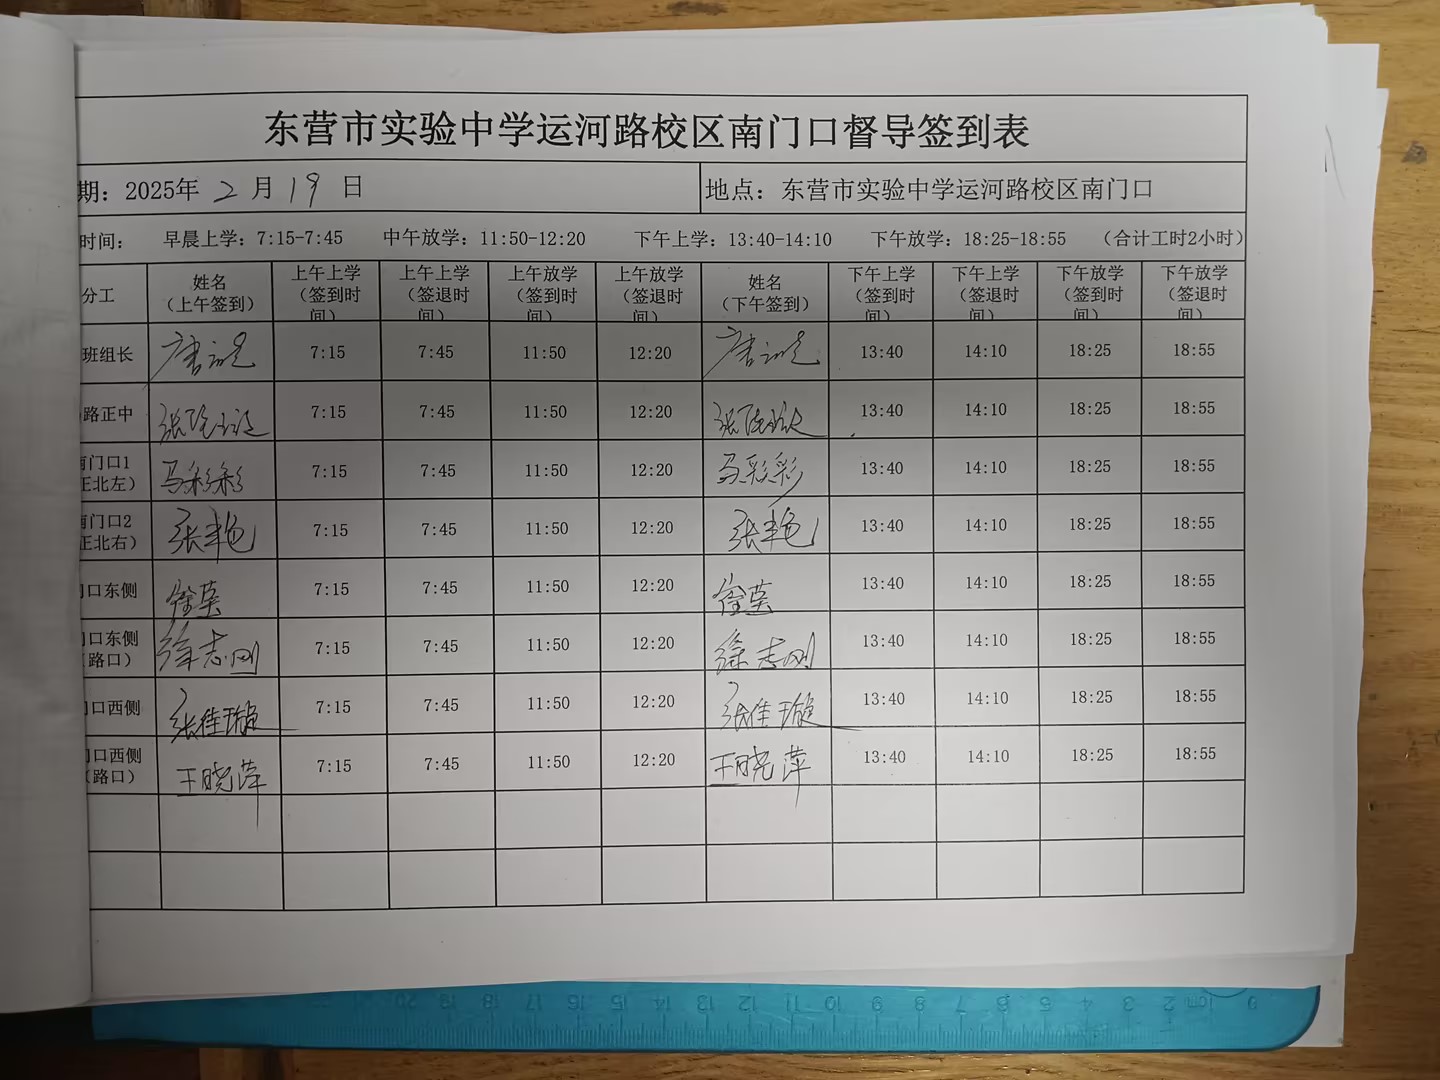 东营市实验中学运河路校区南门口督导签到表
期：2025年 2 月 19 日 地点：东营市实验中学运河路校区南门口
时间： 早晨上学：7:15-7:45 中午放学：11:50-12:20 下午上学：13:40-14:10 下午放学：18:25-18:55 （合计工时2小时）
分工 姓名（上午签到） 上午上学（签到时间） 上午上学（签退时间） 上午放学（签到时间） 上午放学（签退时间） 姓名（下午签到） 下午上学（签到时间） 下午上学（签退时间） 下午放学（签到时间） 下午放学（签退时间）
班组长 7:15 7:45 11:50 12:20 13:40 14:10 18:25 18:55
路正中 7:15 7:45 11:50 12:20 13:40 14:10 18:25 18:55
南门口1（正北左） 马彩彩 7:15 7:45 11:50 12:20 马彩彩 13:40 14:10 18:25 18:55
南门口2（正北右） 张艳 7:15 7:45 11:50 12:20 张艳 13:40 14:10 18:25 18:55
门口东侧 7:15 7:45 11:50 12:20 13:40 14:10 18:25 18:55
门口东侧（路口） 徐志刚 7:15 7:45 11:50 12:20 徐志刚 13:40 14:10 18:25 18:55
门口西侧 张佳璇 7:15 7:45 11:50 12:20 张佳璇 13:40 14:10 18:25 18:55
门口西侧（路口） 王晓萍 7:15 7:45 11:50 12:20 王晓萍 13:40 14:10 18:25 18:55
20 19 18 17 16 15 14 13 12 11 10 9 8 7 6 5 4 3 2 1cm 0